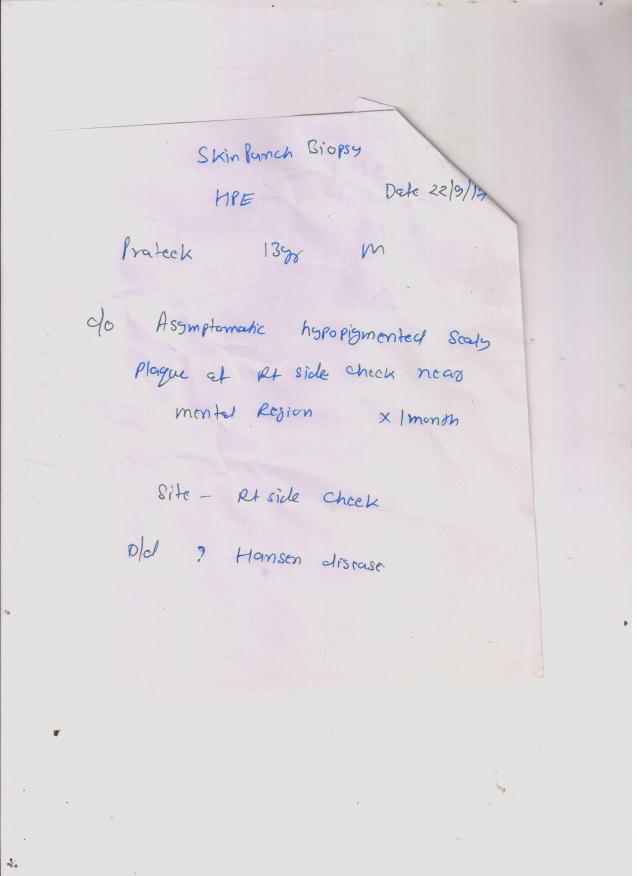 Skin Punch Biopsy
HPE Date 22/9/17
Prateek 13yr M
c/o Asymptomatic hypopigmented Scaly
plaque at Rt side cheek near
mental Region x 1 month
Site - Rt side Cheek
D/d ? Hansen disease